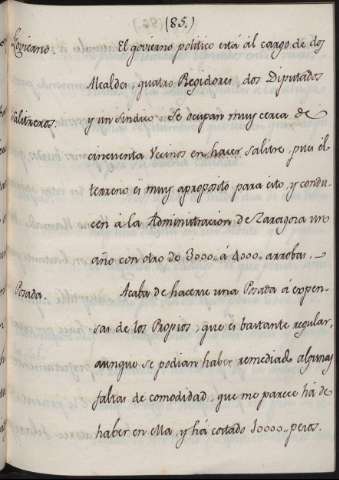 (85.)
Govierno. El govierno politico está ál cargo de dos
Alcaldes, quatro Regidores, dos Diputados
Salitreros. y un Sindico. Se ocupan muy cerca de
cincuenta Vecinos en hacer Salitre, pues él
terreno es muy aproposito para esto, y condu-
cen á la Administracion de Zaragoza un
año con otro de 3000. á 4000. arrobas.
Posada. Acaba de hacerse una Posada á expen-
sas de los Propios, que es bastante regular,
aunque se podian haber remediado algunas
faltas de comodidad, que me parece há de
haber en ella, y há costado 10000. pesos.